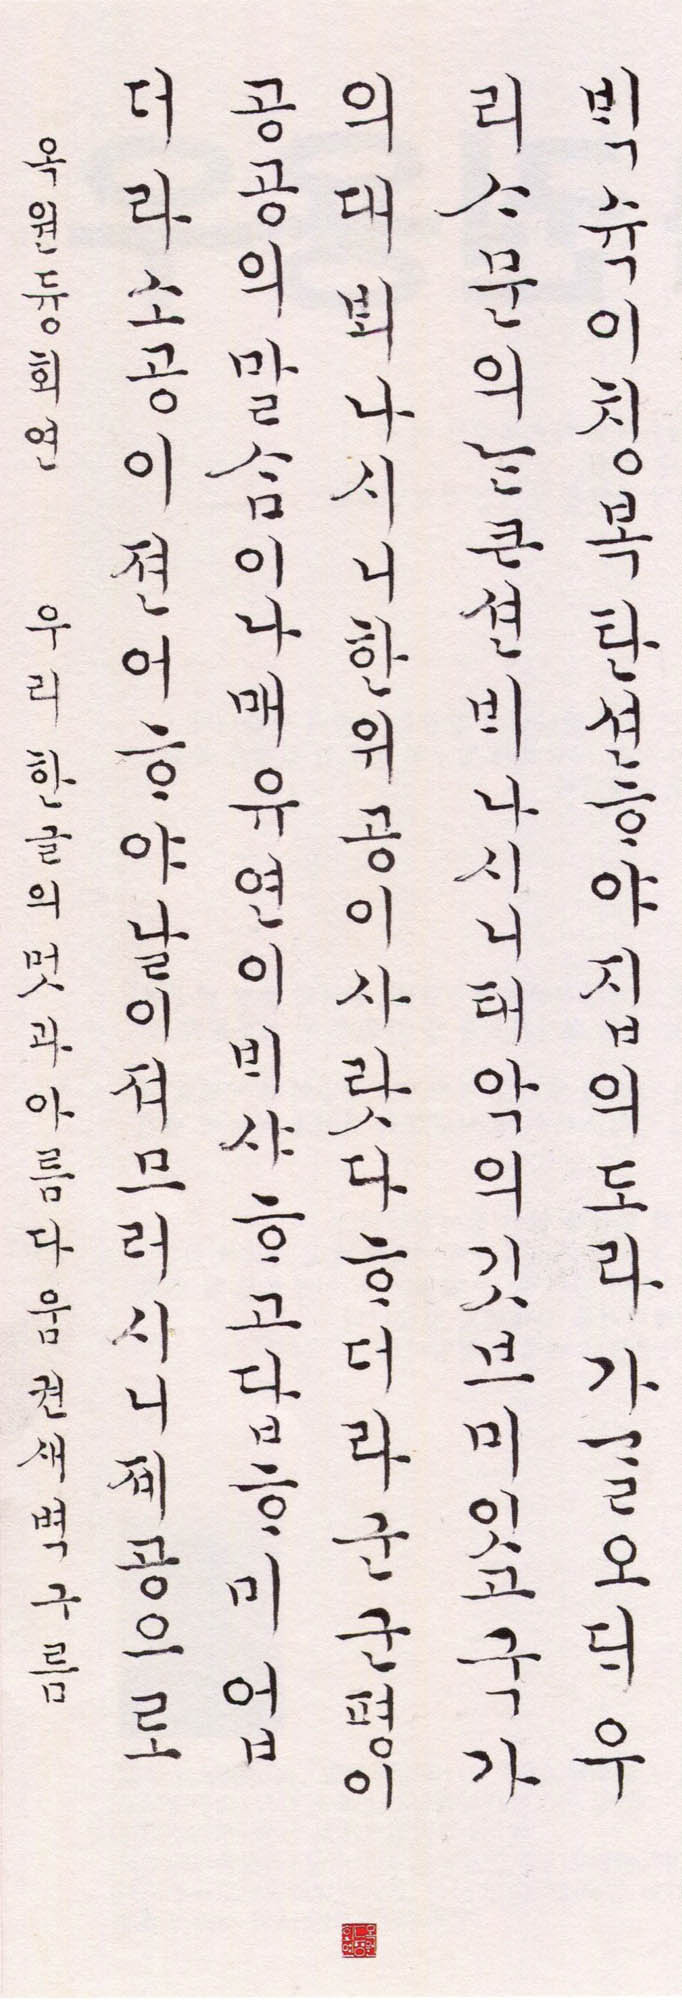 ᄇᆡᆨ슉이칭복탄션ᄒᆞ야집의도라가ᄀᆞᆯ오ᄃᆡ우
리ᄉᆞ문의ᄂᆞᆫ큰션ᄇᆡ나시니태악의깃브미잇고국가
의대뵈나시니한위공이사랏다ᄒᆞ더라군군평이
공공의말ᄉᆞᆷ이나매유연이ᄇᆡ샤ᄒᆞ고답ᄒᆞ미업
더라소공이젼어ᄒᆞ야날이져므러시니졔공으로
옥원듕회연 우리한글의멋과아름다움권새벽구름